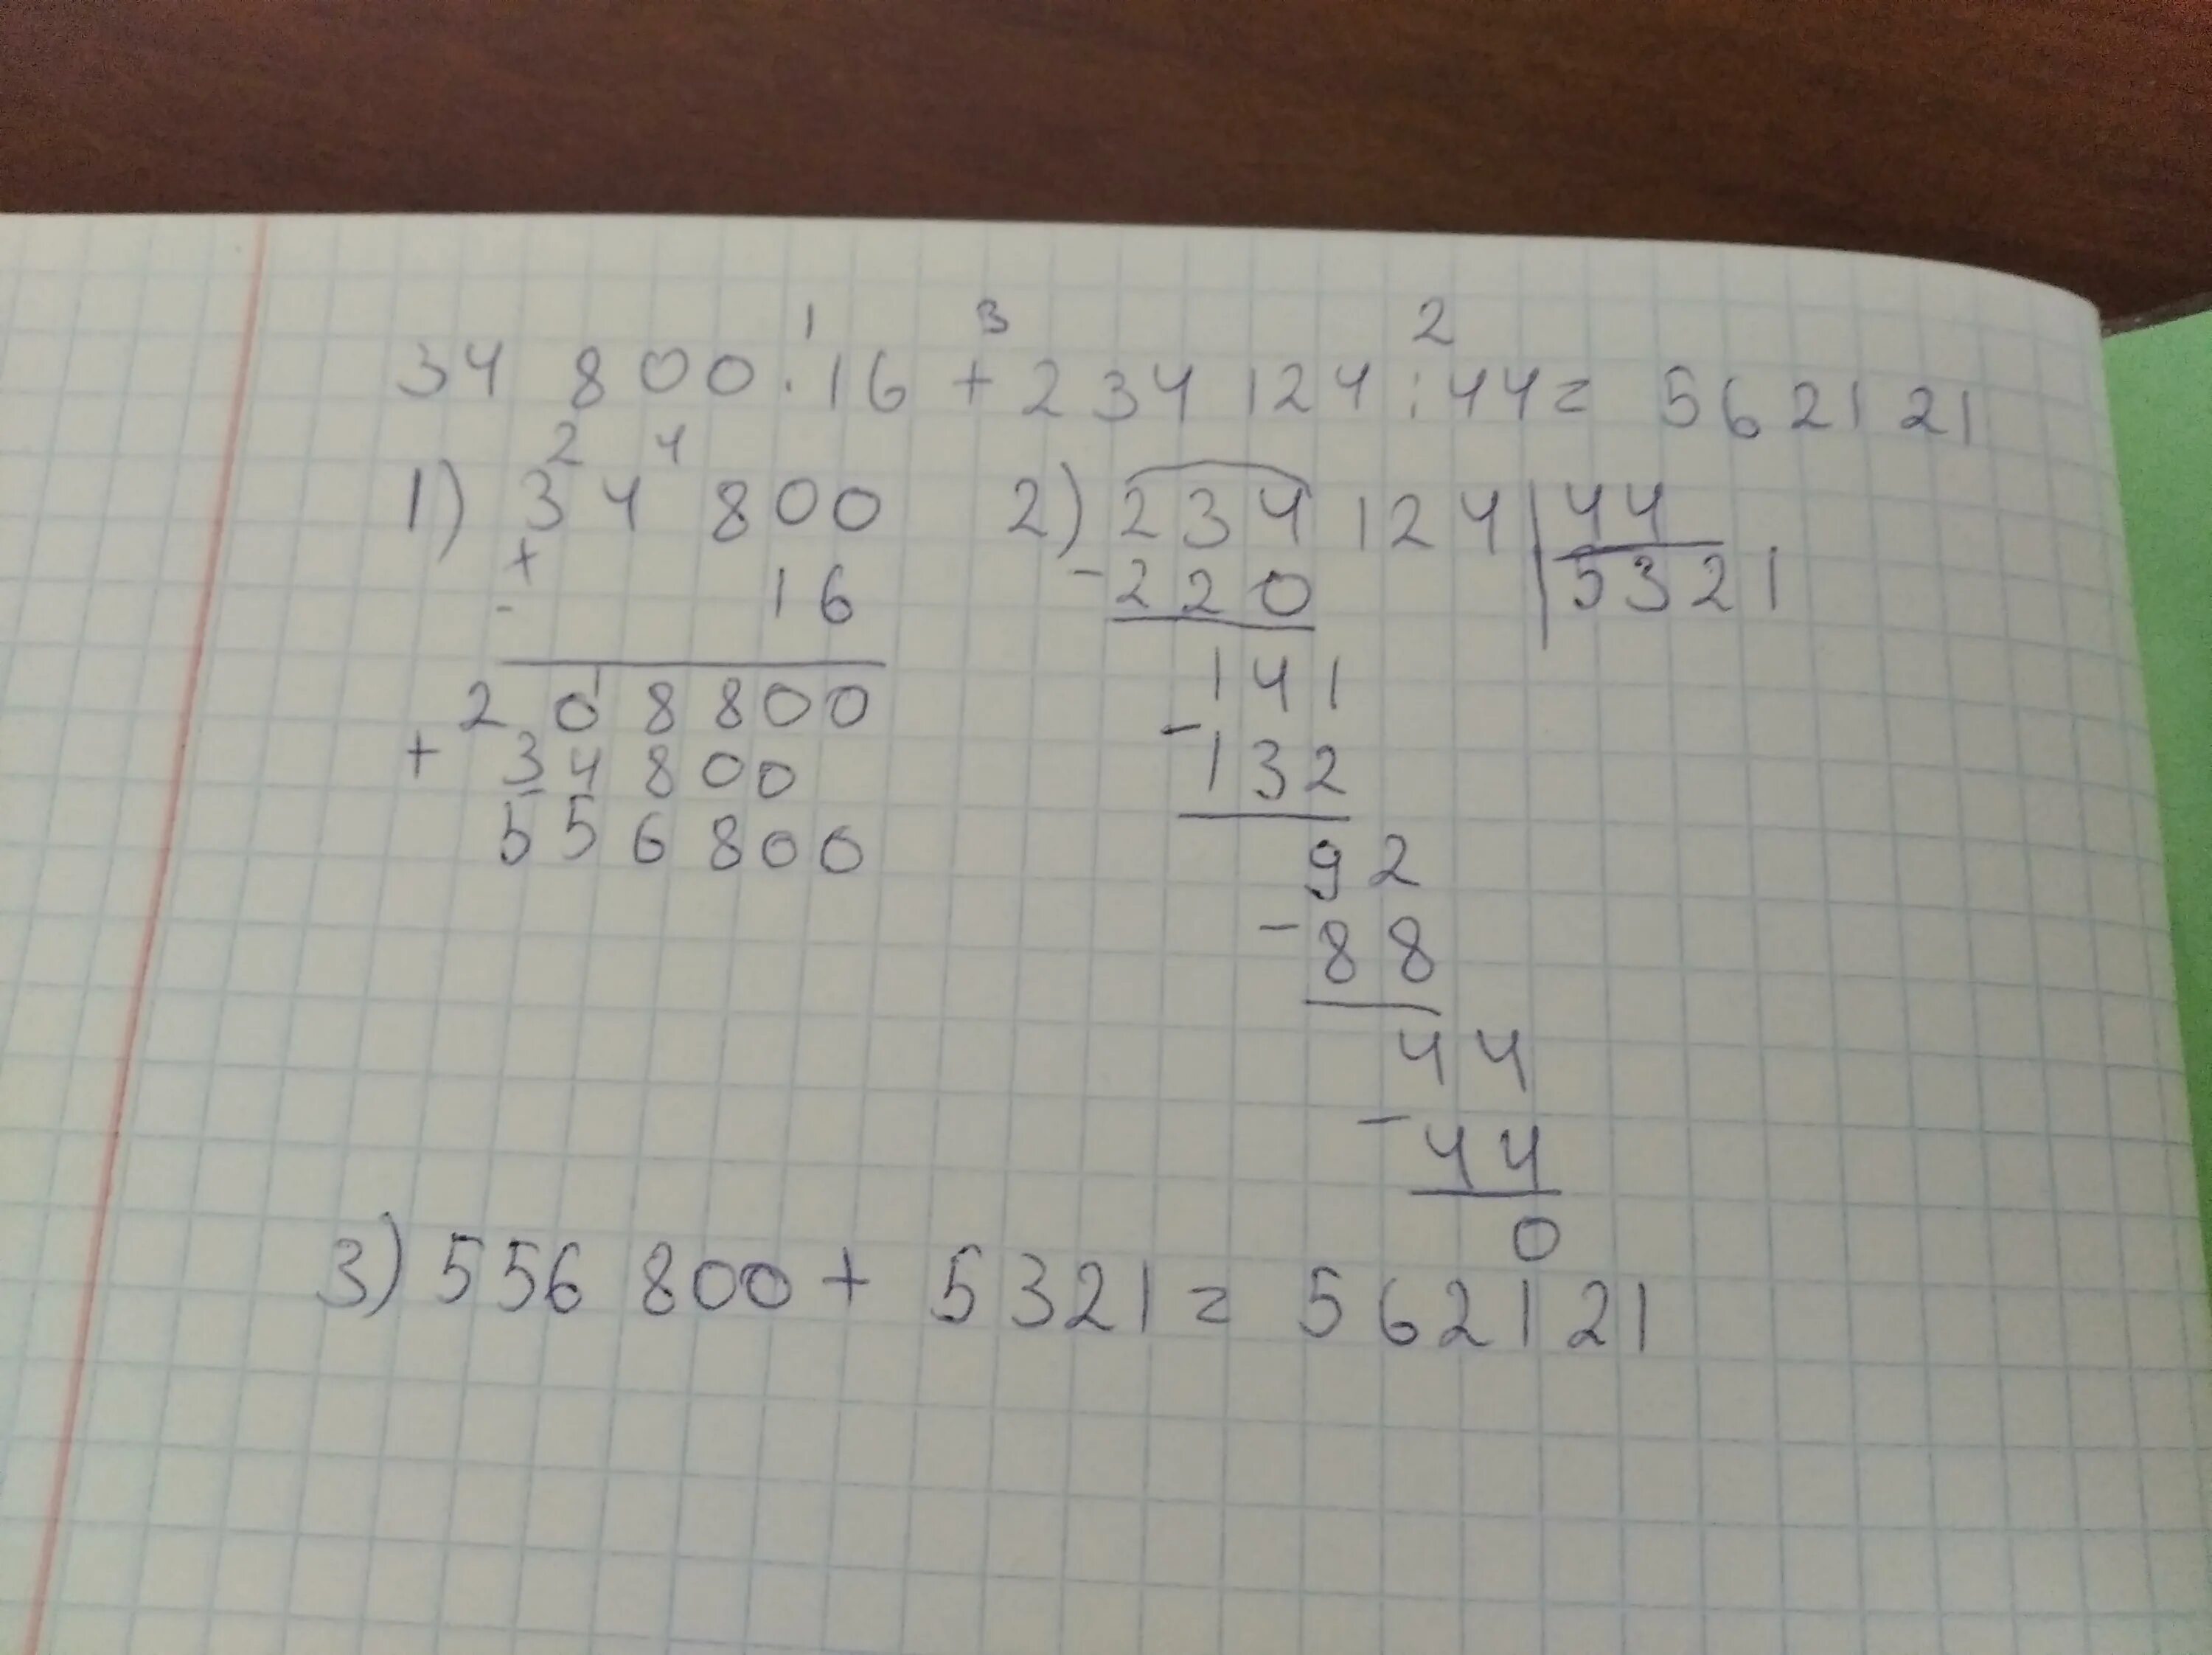 1 3 2
34 800 · 16 + 234 124 : 44 = 562 121
2 4
1) 34 800
×
16
208800
+ 34800
556800
2) 234 124 | 44
- 220 | 5321
141
- 132
92
- 88
44
- 44
0
3) 556 800 + 5321 = 562121